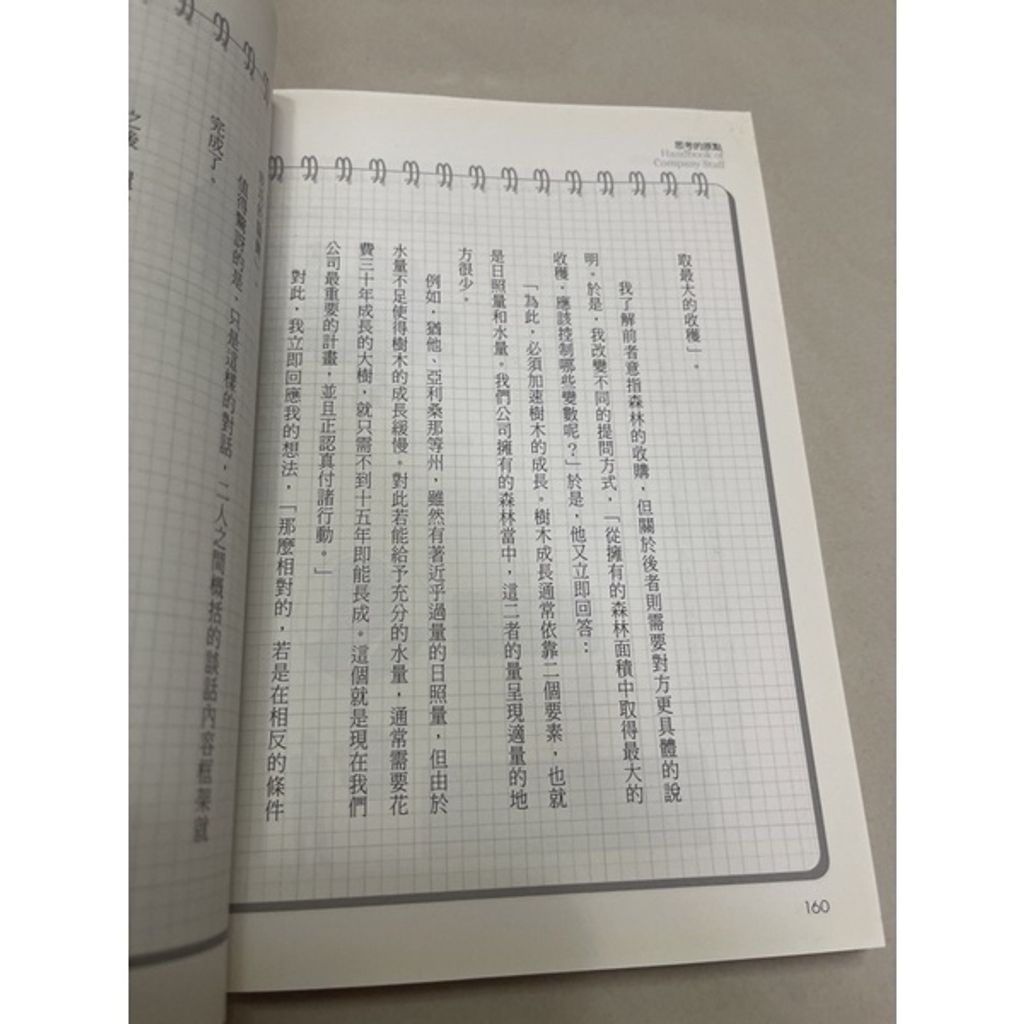 思考的原點
Handbook of
Company Staff
取最大的收穫」。
我了解前者意指森林的收購，但關於後者則需要對方更具體的說
明。於是，我改變不同的提問方式，「從擁有的森林面積中取得最大的
收穫，應該控制哪些變數呢？」於是，他又立即回答：
「為此，必須加速樹木的成長。樹木成長通常依靠二個要素，也就
是日照量和水量。我們公司擁有的森林當中，這二者的量呈現適量的地
方很少。
例如，猶他、亞利桑那等州，雖然有著近乎過量的日照量，但由於
水量不足使得樹木的成長緩慢。對此若能給予充分的水量，通常需要花
費三十年成長的大樹，就只需不到十五年即能長成。這個就是現在我們
公司最重要的計畫，並且正認真付諸行動。」
對此，我立即回應我的想法，「那麼相對的，若是在相反的條件
160
值得驚訝的是，只是這樣的對話，二人之間概括的談話內容框架就
完成了。
之後